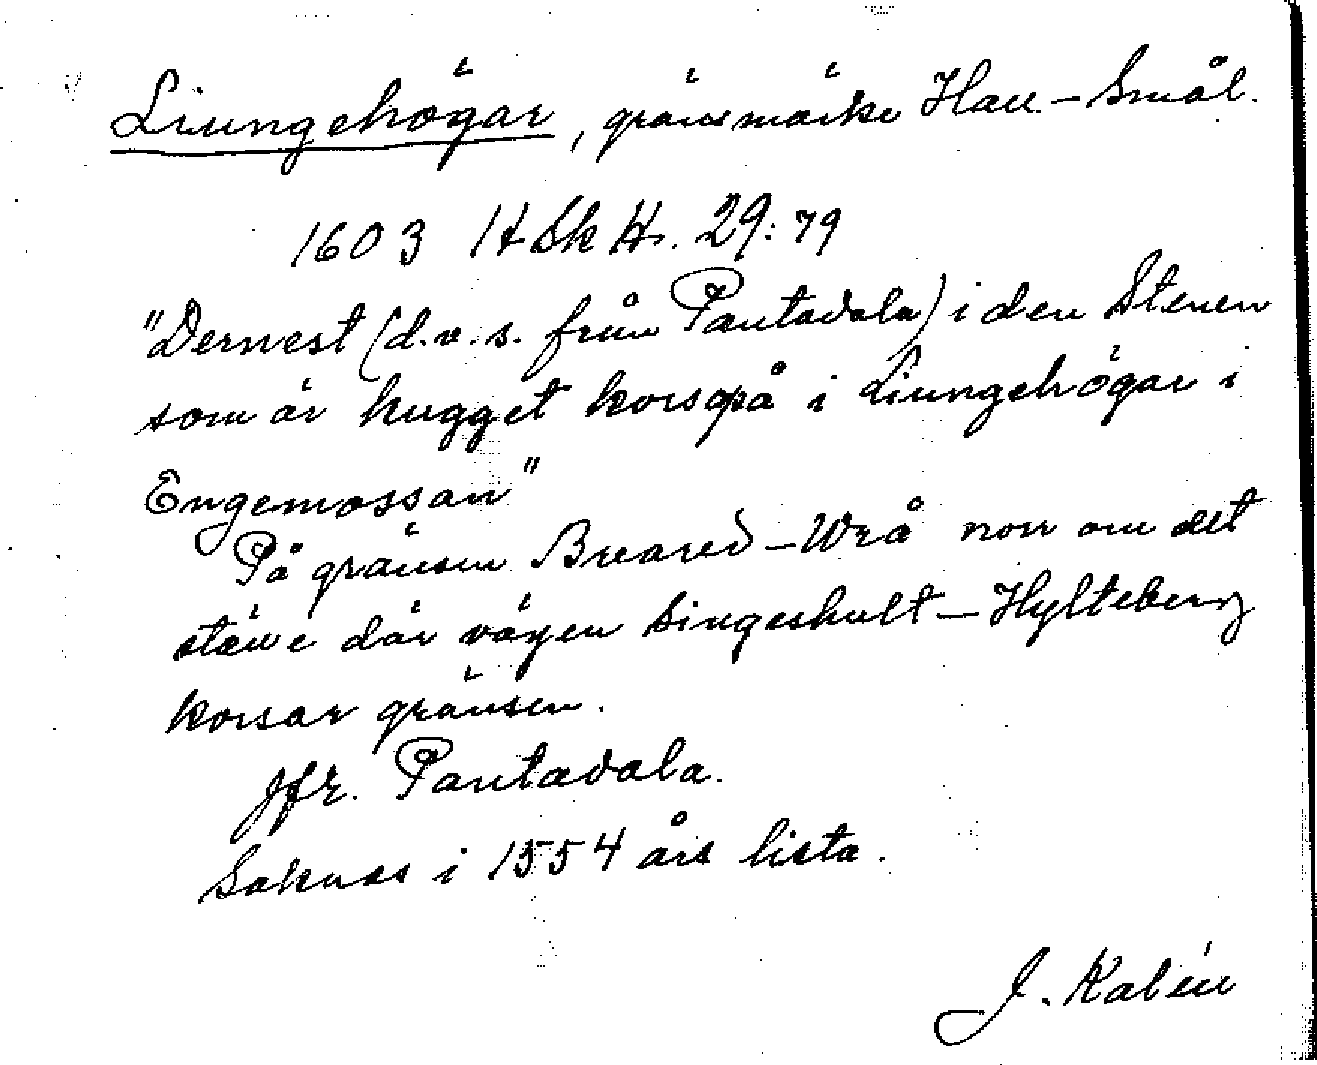 Liungehögar, gränsmärke Hall – Smål.
1603 HSkH. 29:79
"Dernest (d.v.s. från Pantadala) i den Stenen
som är hugget kors på i Liungehögar i
Engemossan"
På gränsen Breared – Wrå norr om det
ställe där vägen Singeshult – Hylteberg
korsar gränsen.
Jfr. Pantadala.
Saknas i 1554 års lista.
J. Kalén